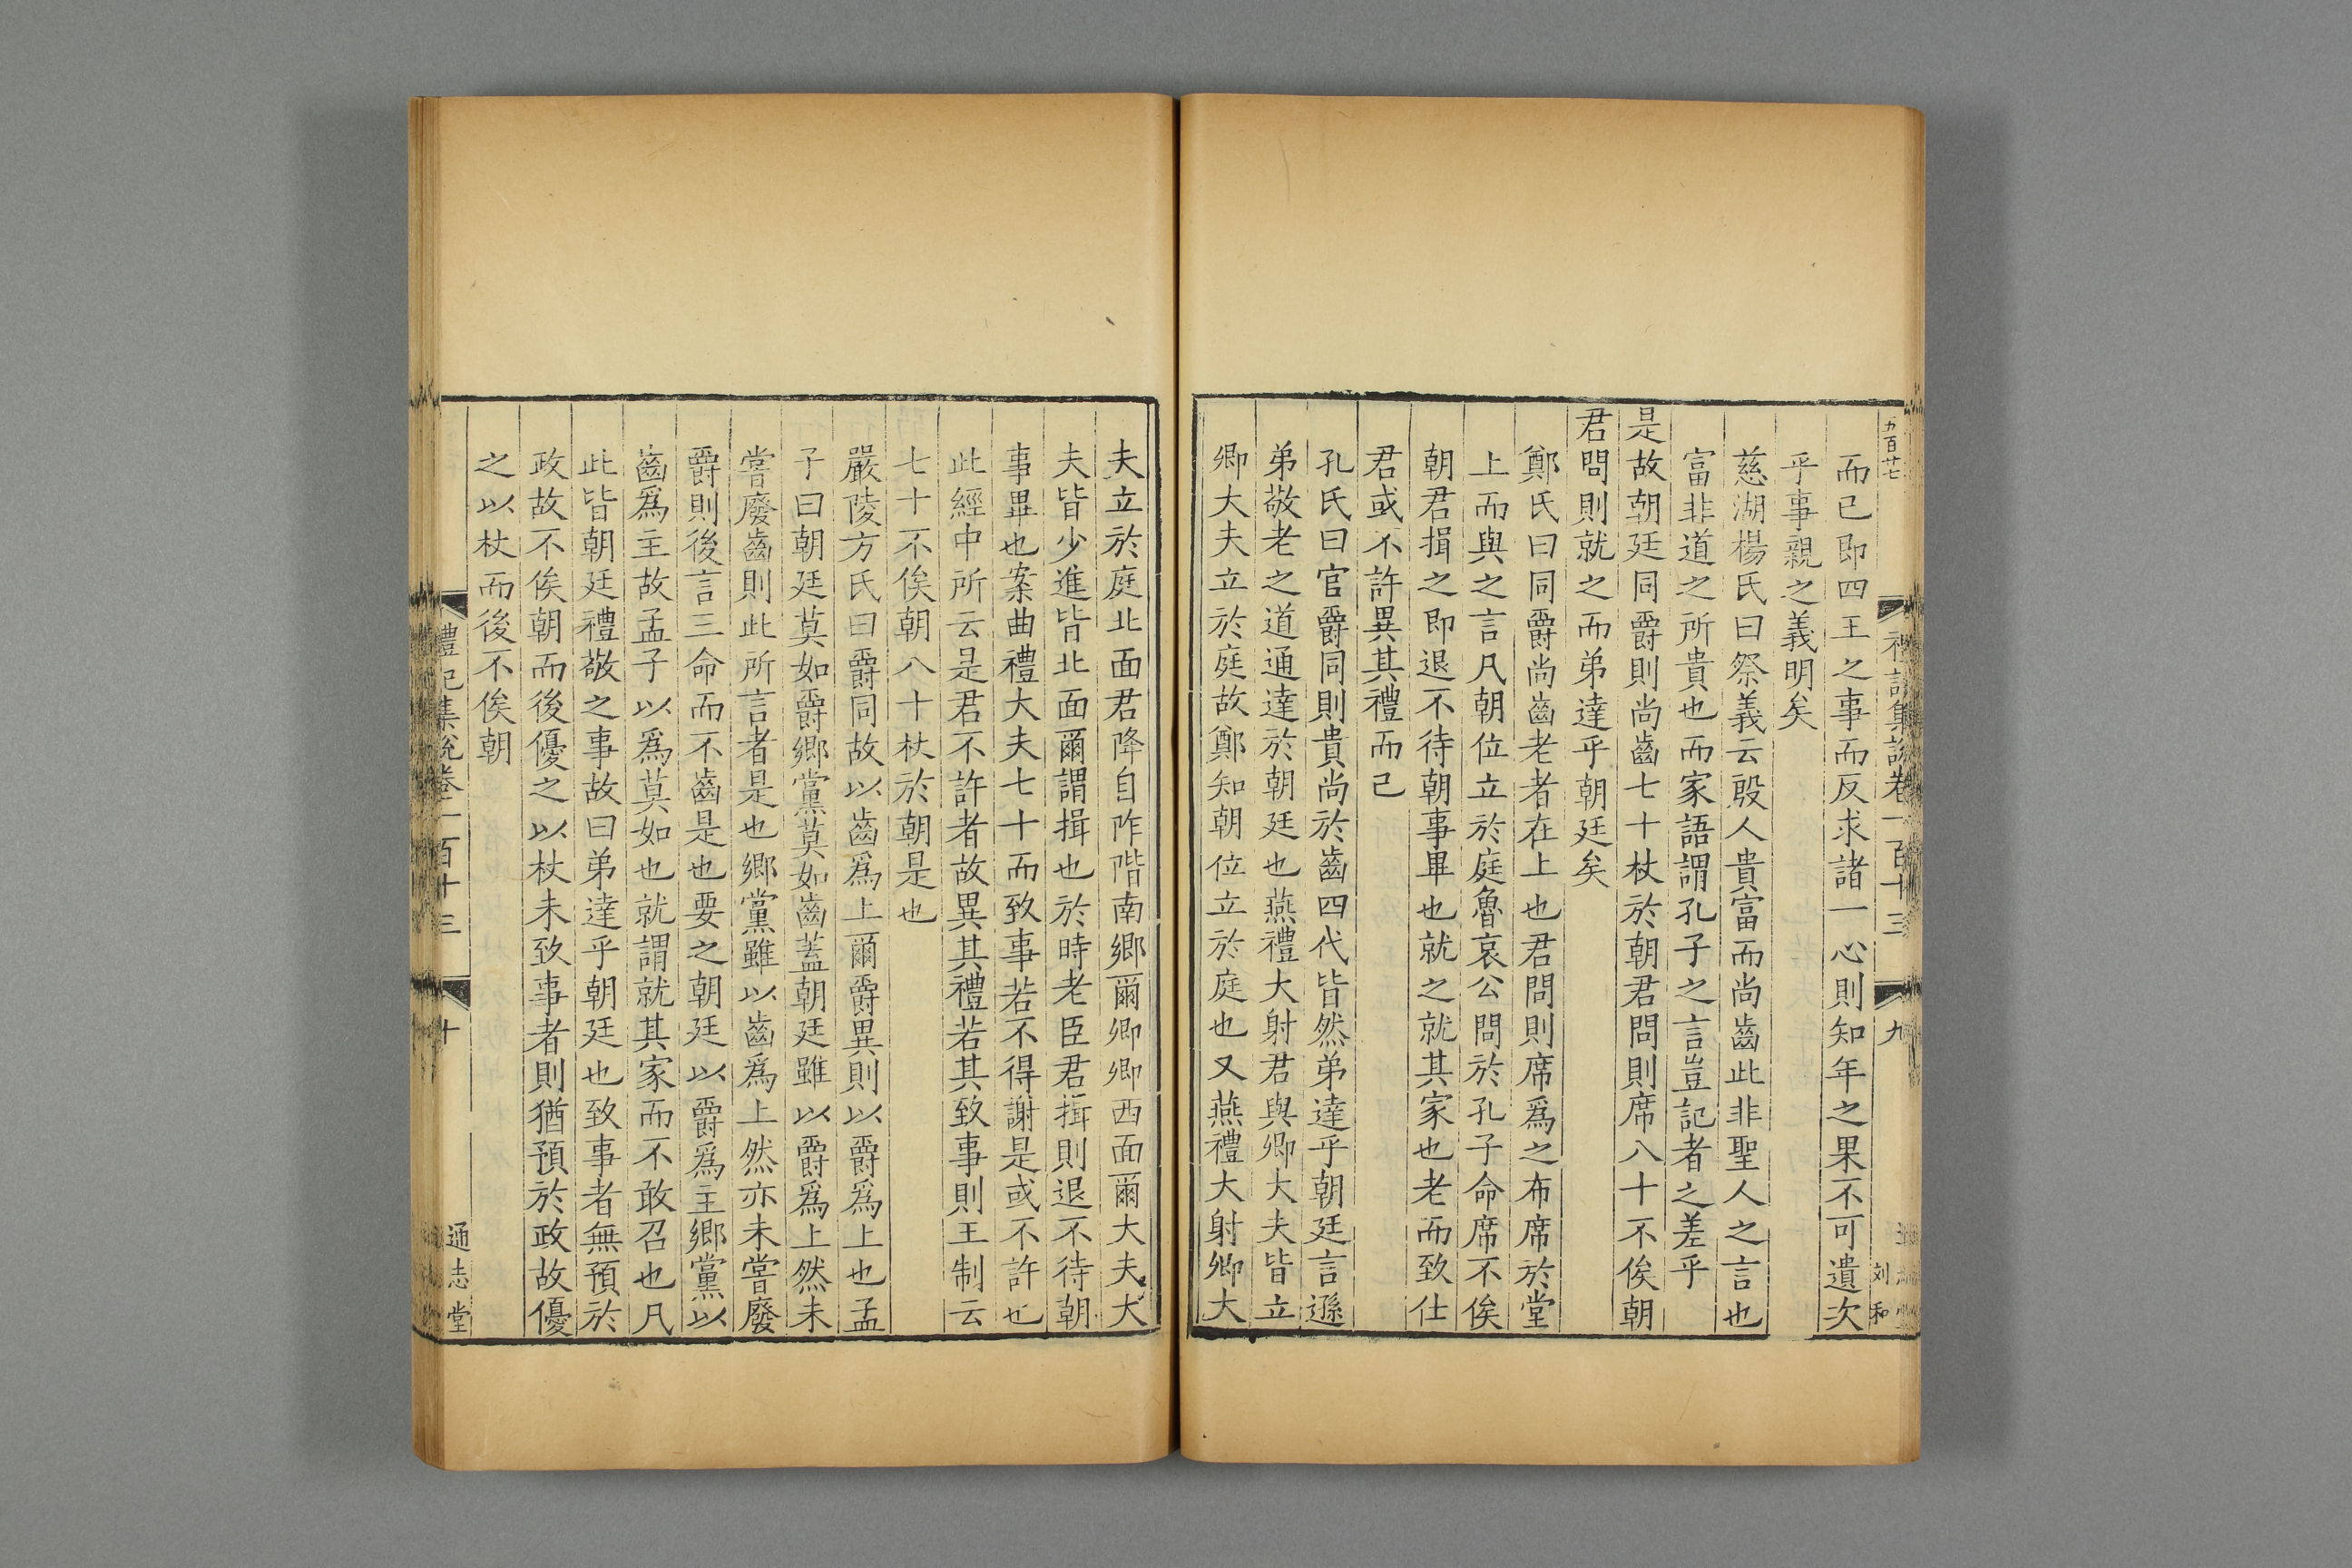 五百廿七
禮記集說卷一百十三
九
刘和
而已即四王之事而反求諸一心則知年之果不可遺次
乎事親之義明矣
慈湖楊氏曰祭義云殷人貴富而尚齒此非聖人之言也
富非道之所貴也而家語謂孔子之言豈記者之差乎
是故朝廷同爵則尚齒七十杖於朝君問則席八十不俟朝
君問則就之而弟達乎朝廷矣
鄭氏曰同爵尚齒老者在上也君問則席爲之布席於堂
上而與之言凡朝位立於庭魯哀公問於孔子命席不俟
朝君揖之即退不待朝事畢也就之就其家也老而致仕
君或不許異其禮而已
孔氏曰官爵同則貴尚於齒四代皆然弟達乎朝廷言遜
弟敬老之道通達於朝廷也燕禮大射君與卿大夫皆立
卿大夫立於庭故鄭知朝位立於庭也又燕禮大射卿大
夫立於庭北面君降自阼階南鄉爾卿卿西面爾大夫大
夫皆少進皆北面爾謂揖也於時老臣君揖則退不待朝
事畢也案曲禮大夫七十而致事若不得謝是或不許也
此經中所云是君不許者故異其禮若其致事則王制云
七十不俟朝八十杖於朝是也
嚴陵方氏曰爵同故以齒爲上爾爵異則以爵爲上也孟
子曰朝廷莫如爵鄉黨莫如齒蓋朝廷雖以爵爲上然未
嘗廢齒則此所言者是也鄉黨雖以齒爲上然亦未嘗廢
爵則後言三命而不齒是也要之朝廷以爵爲主鄉黨以
齒爲主故孟子以爲莫如也就謂就其家而不敢召也凡
此皆朝廷禮敬之事故曰弟達乎朝廷也致事者無預於
政故不俟朝而後優之以杖未致事者則猶預於政故優
之以杖而後不俟朝
禮記集說卷一百十三
十
通志堂